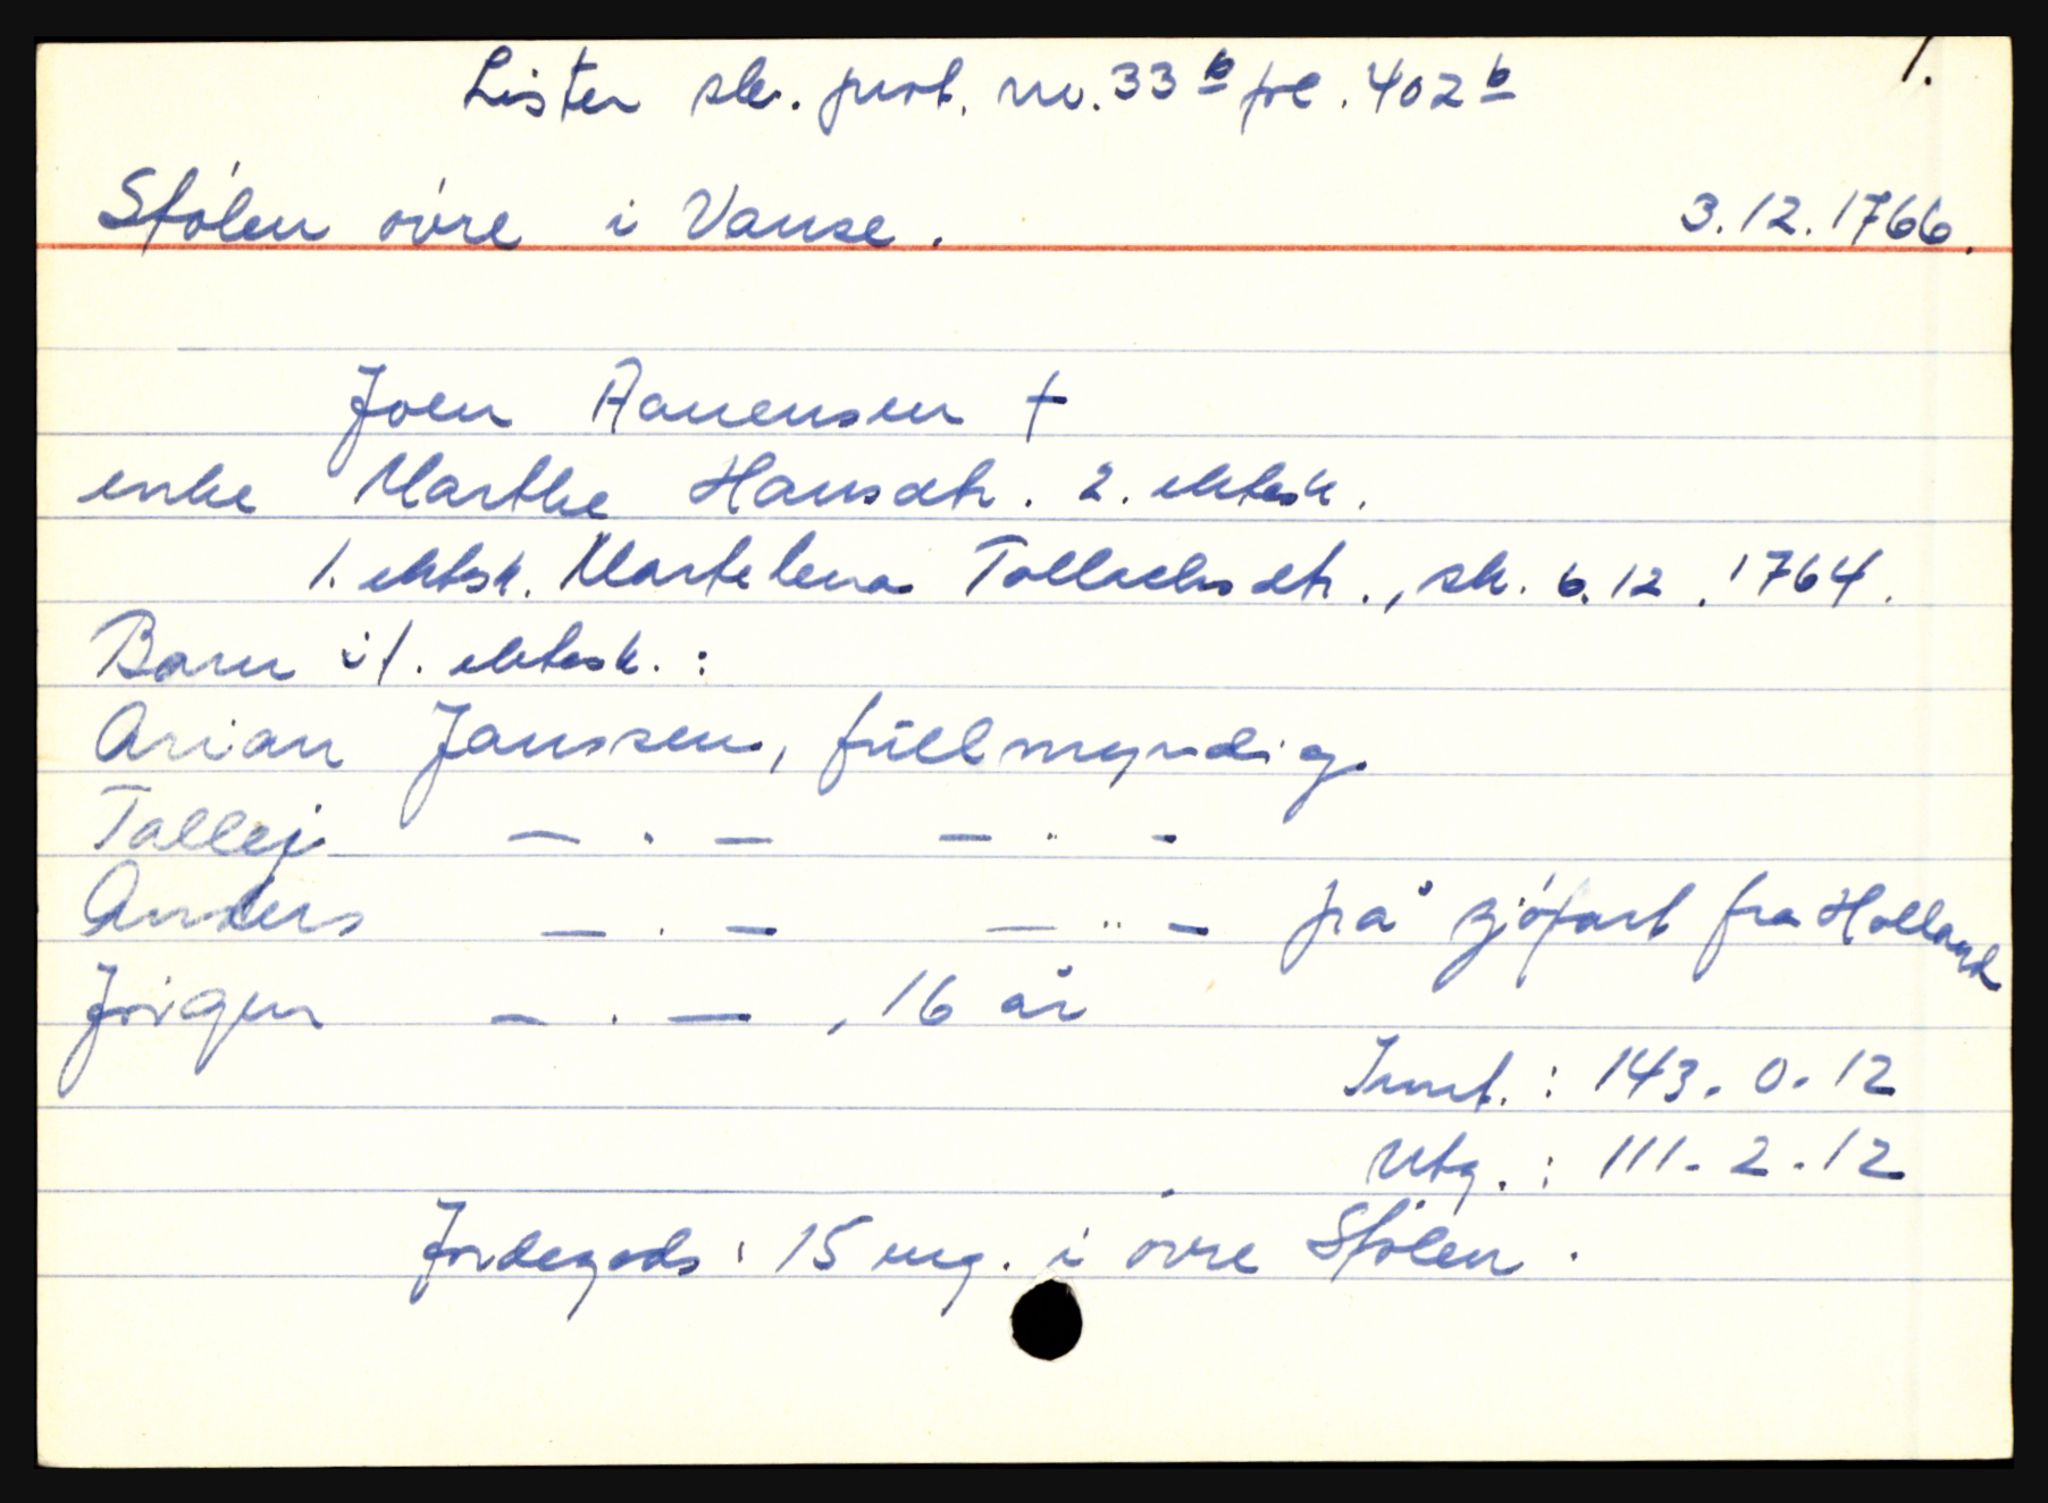 1.
Lister sk. prot. nr. 33 b fol. 402 b
Stölen övre i Vanse.
3.12.1766.
Joen Aanensen †
enke Marthe Hansdtr. 2. ektesk.
1. ektesk. Martelena Tollachsdtr., sk. 6.12.1764.
Barn i 1. ektesk.:
Arian Janssen, fullmyndig.
Tallej — . — — .. -
Anders — . — — .. - på sjöfart fra Holland
Jörgen — . — , 16 år
Innt. : 143. 0. 12
Utg. : 111. 2. 12
Jordegods: 15 eng. i övre Stölen.